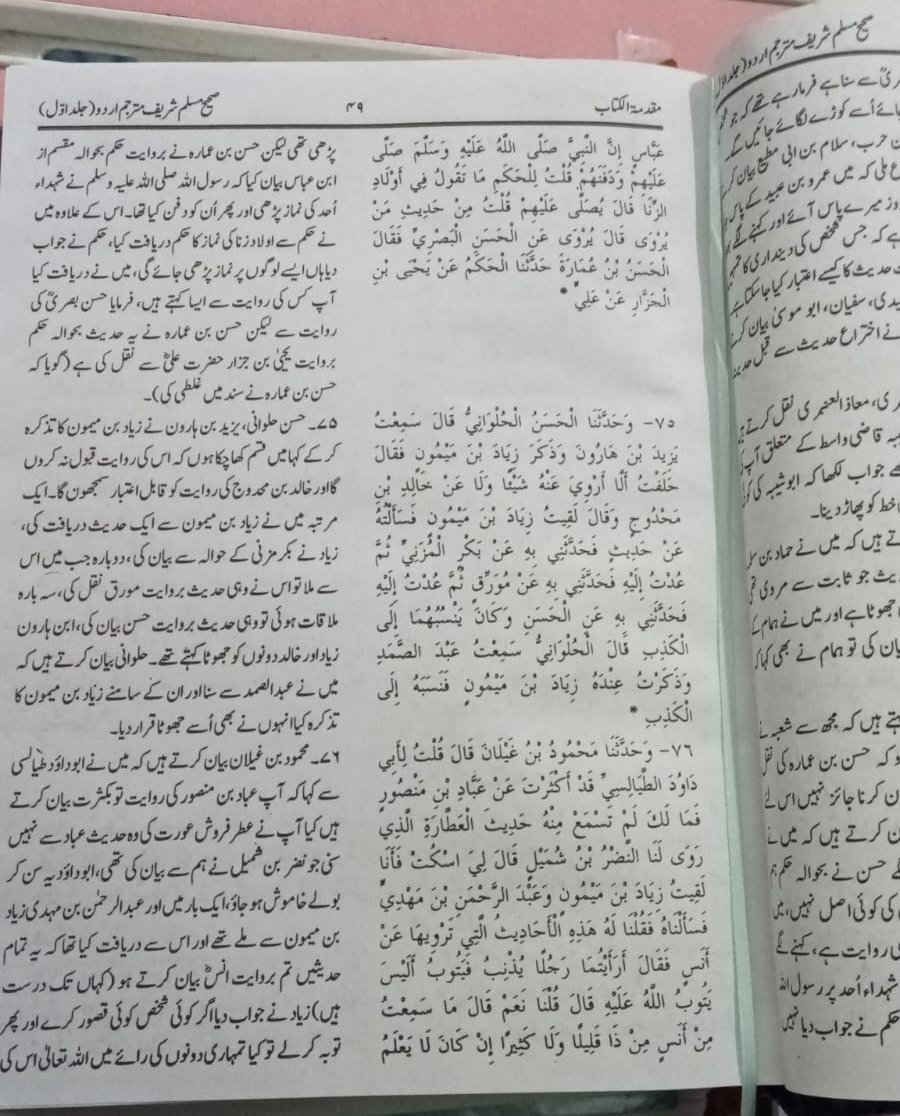 مقدمة الکتاب
۴۹
صحیح مسلم شریف مترجم اردو (جلد اوّل)
عَبَّاسٍ إِنَّ النَّبِيَّ صَلَّى اللَّهُ عَلَيْهِ وَسَلَّمَ صَلَّى
عَلَيْهِمْ وَدَفَنَهُمْ قُلْتُ لِلْحَكَمِ مَا تَقُولُ فِي أَوْلَادِ
الزِّنَا قَالَ يُصَلَّى عَلَيْهِمْ قُلْتُ مِنْ حَدِيثِ مَنْ
يُرْوَى قَالَ يُرْوَى عَنِ الْحَسَنِ الْبَصْرِيِّ فَقَالَ
الْحَسَنُ بْنُ عُمَارَةَ حَدَّثَنَا الْحَكَمُ عَنْ يَحْيَى بْنِ
الْجَزَّارِ عَنْ عَلِيٍّ *
٧٥- وَحَدَّثَنَا الْحَسَنُ الْحُلْوَانِيُّ قَالَ سَمِعْتُ
يَزِيدَ بْنَ هَارُونَ وَذَكَرَ زِيَادَ بْنَ مَيْمُونٍ فَقَالَ
حَلَفْتُ أَلَّا أَرْوِيَ عَنْهُ شَيْئًا وَلَا عَنْ خَالِدِ بْنِ
مَحْدُوجٍ وَقَالَ لَقِيتُ زِيَادَ بْنَ مَيْمُونٍ فَسَأَلْتُهُ
عَنْ حَدِيثٍ فَحَدَّثَنِي بِهِ عَنْ بَكْرٍ الْمُزَنِيِّ ثُمَّ
عُدْتُ إِلَيْهِ فَحَدَّثَنِي بِهِ عَنْ مُوَرِّقٍ ثُمَّ عُدْتُ إِلَيْهِ
فَحَدَّثَنِي بِهِ عَنِ الْحَسَنِ وَكَانَ يَنْسُبُهُمَا إِلَى
الْكَذِبِ قَالَ الْحُلْوَانِيُّ سَمِعْتُ عَبْدَ الصَّمَدِ
وَذَكَرْتُ عِنْدَهُ زِيَادَ بْنَ مَيْمُونٍ فَنَسَبَهُ إِلَى
الْكَذِبِ *
٧٦- وَحَدَّثَنَا مَحْمُودُ بْنُ غَيْلَانَ قَالَ قُلْتُ لِأَبِي
دَاوُدَ الطَّيَالِسِيِّ قَدْ أَكْثَرْتَ عَنْ عَبَّادِ بْنِ مَنْصُورٍ
فَمَا لَكَ لَمْ تَسْمَعْ مِنْهُ حَدِيثَ الْعَطَّارَةِ الَّذِي
رَوَى لَنَا النَّضْرُ بْنُ شُمَيْلٍ قَالَ لِيَ اسْكُتْ فَأَنَا
لَقِيتُ زِيَادَ بْنَ مَيْمُونٍ وَعَبْدَ الرَّحْمَنِ بْنَ مَهْدِيٍّ
فَسَأَلْنَاهُ فَقُلْنَا لَهُ هَذِهِ الْأَحَادِيثُ الَّتِي تَرْوِيهَا عَنْ
أَنَسٍ فَقَالَ أَرَأَيْتُمَا رَجُلًا يُذْنِبُ فَيَتُوبُ أَلَيْسَ
يَتُوبُ اللَّهُ عَلَيْهِ قَالَ قُلْنَا نَعَمْ قَالَ مَا سَمِعْتُ
مِنْ أَنَسٍ مِنْ ذَا قَلِيلًا وَلَا كَثِيرًا إِنْ كَانَ لَا يَعْلَمُ
پڑھی تھی لیکن حسن بن عمارہ نے بروایت حکم بحوالہ مقسم از
ابن عباس بیان کیا کہ رسول اللہ صلی اللہ علیہ وسلم نے شہداء
اُحد کی نماز پڑھی اور پھر اُن کو دفن کیا تھا۔ اس کے علاوہ میں
نے حکم سے اولاد زنا کی نماز کا حکم دریافت کیا، حکم نے جواب
دیا ہاں ایسے لوگوں پر نماز پڑھی جائے گی، میں نے دریافت کیا
آپ کس کی روایت سے ایسا کہتے ہیں، فرمایا حسن بصریؒ کی
روایت سے لیکن حسن بن عمارہ نے یہ حدیث بحوالہ حکم
بروایت یحییٰ بن جزار حضرت علیؓ سے نقل کی ہے (گویا کہ
حسن بن عمارہ نے سند میں غلطی کی)۔
۷۵۔ حسن حلوانی، یزید بن ہارون نے زیاد بن میمون کا تذکرہ
کر کے کہا میں قسم کھا چکا ہوں کہ اس کی روایت قبول نہ کروں
گا اور خالد بن محدوج کی روایت کو قابل اعتبار سمجھوں گا۔ ایک
مرتبہ میں نے زیاد بن میمون سے ایک حدیث دریافت کی،
زیاد نے بکر مزنی کے حوالہ سے بیان کی، دوبارہ جب میں اس
سے ملا تو اس نے وہی حدیث بروایت مورق نقل کی، سہ بارہ
ملاقات ہوئی تو وہی حدیث بروایت حسن بیان کی، ابن ہارون
زیاد اور خالد دونوں کو جھوٹا کہتے تھے۔ حلوانی بیان کرتے ہیں کہ
میں نے عبدالصمد سے سنا اور ان کے سامنے زیاد بن میمون کا
تذکرہ کیا انہوں نے بھی اُسے جھوٹا قرار دیا۔
۷۶۔ محمود بن غیلان بیان کرتے ہیں کہ میں نے ابو داؤد طیالسی
سے کہا کہ آپ عباد بن منصور کی روایت تو بکثرت بیان کرتے
ہیں کیا آپ نے عطر فروش عورت کی وہ حدیث عباد سے نہیں
سنی جو نضر بن شمیل نے ہم سے بیان کی تھی، ابوداؤد یہ سن کر
بولے خاموش ہو جاؤ، ایک بار میں اور عبدالرحمٰن بن مہدی زیاد
بن میمون سے ملے تھے اور اس سے دریافت کیا تھا کہ یہ تمام
حدیثیں تم بروایت انسؓ بیان کرتے ہو (کہاں تک درست
ہیں) زیاد نے جواب دیا اگر کوئی شخص کوئی قصور کرے اور پھر
توبہ کر لے تو کیا تمہاری دونوں کی رائے میں اللہ تعالیٰ اس کی
صحیح مسلم شریف مترجم اردو (جلد اوّل
سے سنا ہے فرما رہے تھے کہ جو
جائے اُسے کوڑے لگائے جائیں گے۔
حرب، سلام بن ابی مطیع بیان کر
ملی کہ میں عمرو بن عبید کے پاس
روز میرے پاس آئے اور کہنے لگے
ہے کہ جس شخص کی دینداری کا
حدیث کا کیسے اعتبار کیا جاسکتا ہے
سفیان، ابو موسیٰ بیان کر
نے اختراع حدیث سے قبل حدیث
معاذ العنبری نقل کرتے
قاضی واسط کے متعلق آپ
جواب لکھا کہ ابو شیبہ کی کو
خط کو پھاڑ دینا۔
تے ہیں کہ میں نے حماد بن
یث جو ثابت سے مروی تھی
جھوٹا ہے اور میں نے ہمام کے
بیان کی تو ہمام نے بھی کہا کہ
ہتے ہیں کہ مجھ سے شعبہ نے
کہ حسن بن عمارہ کی نقل
کرنا جائز نہیں اس لئے
ن کرتے ہیں کہ میں نے
حسن نے بحوالہ حکم ہم
کی کوئی اصل نہیں، میں
روایت ہے، کہنے لگے
شہداء اُحد پر رسول اللہ
حکم نے جواب دیا نہیں